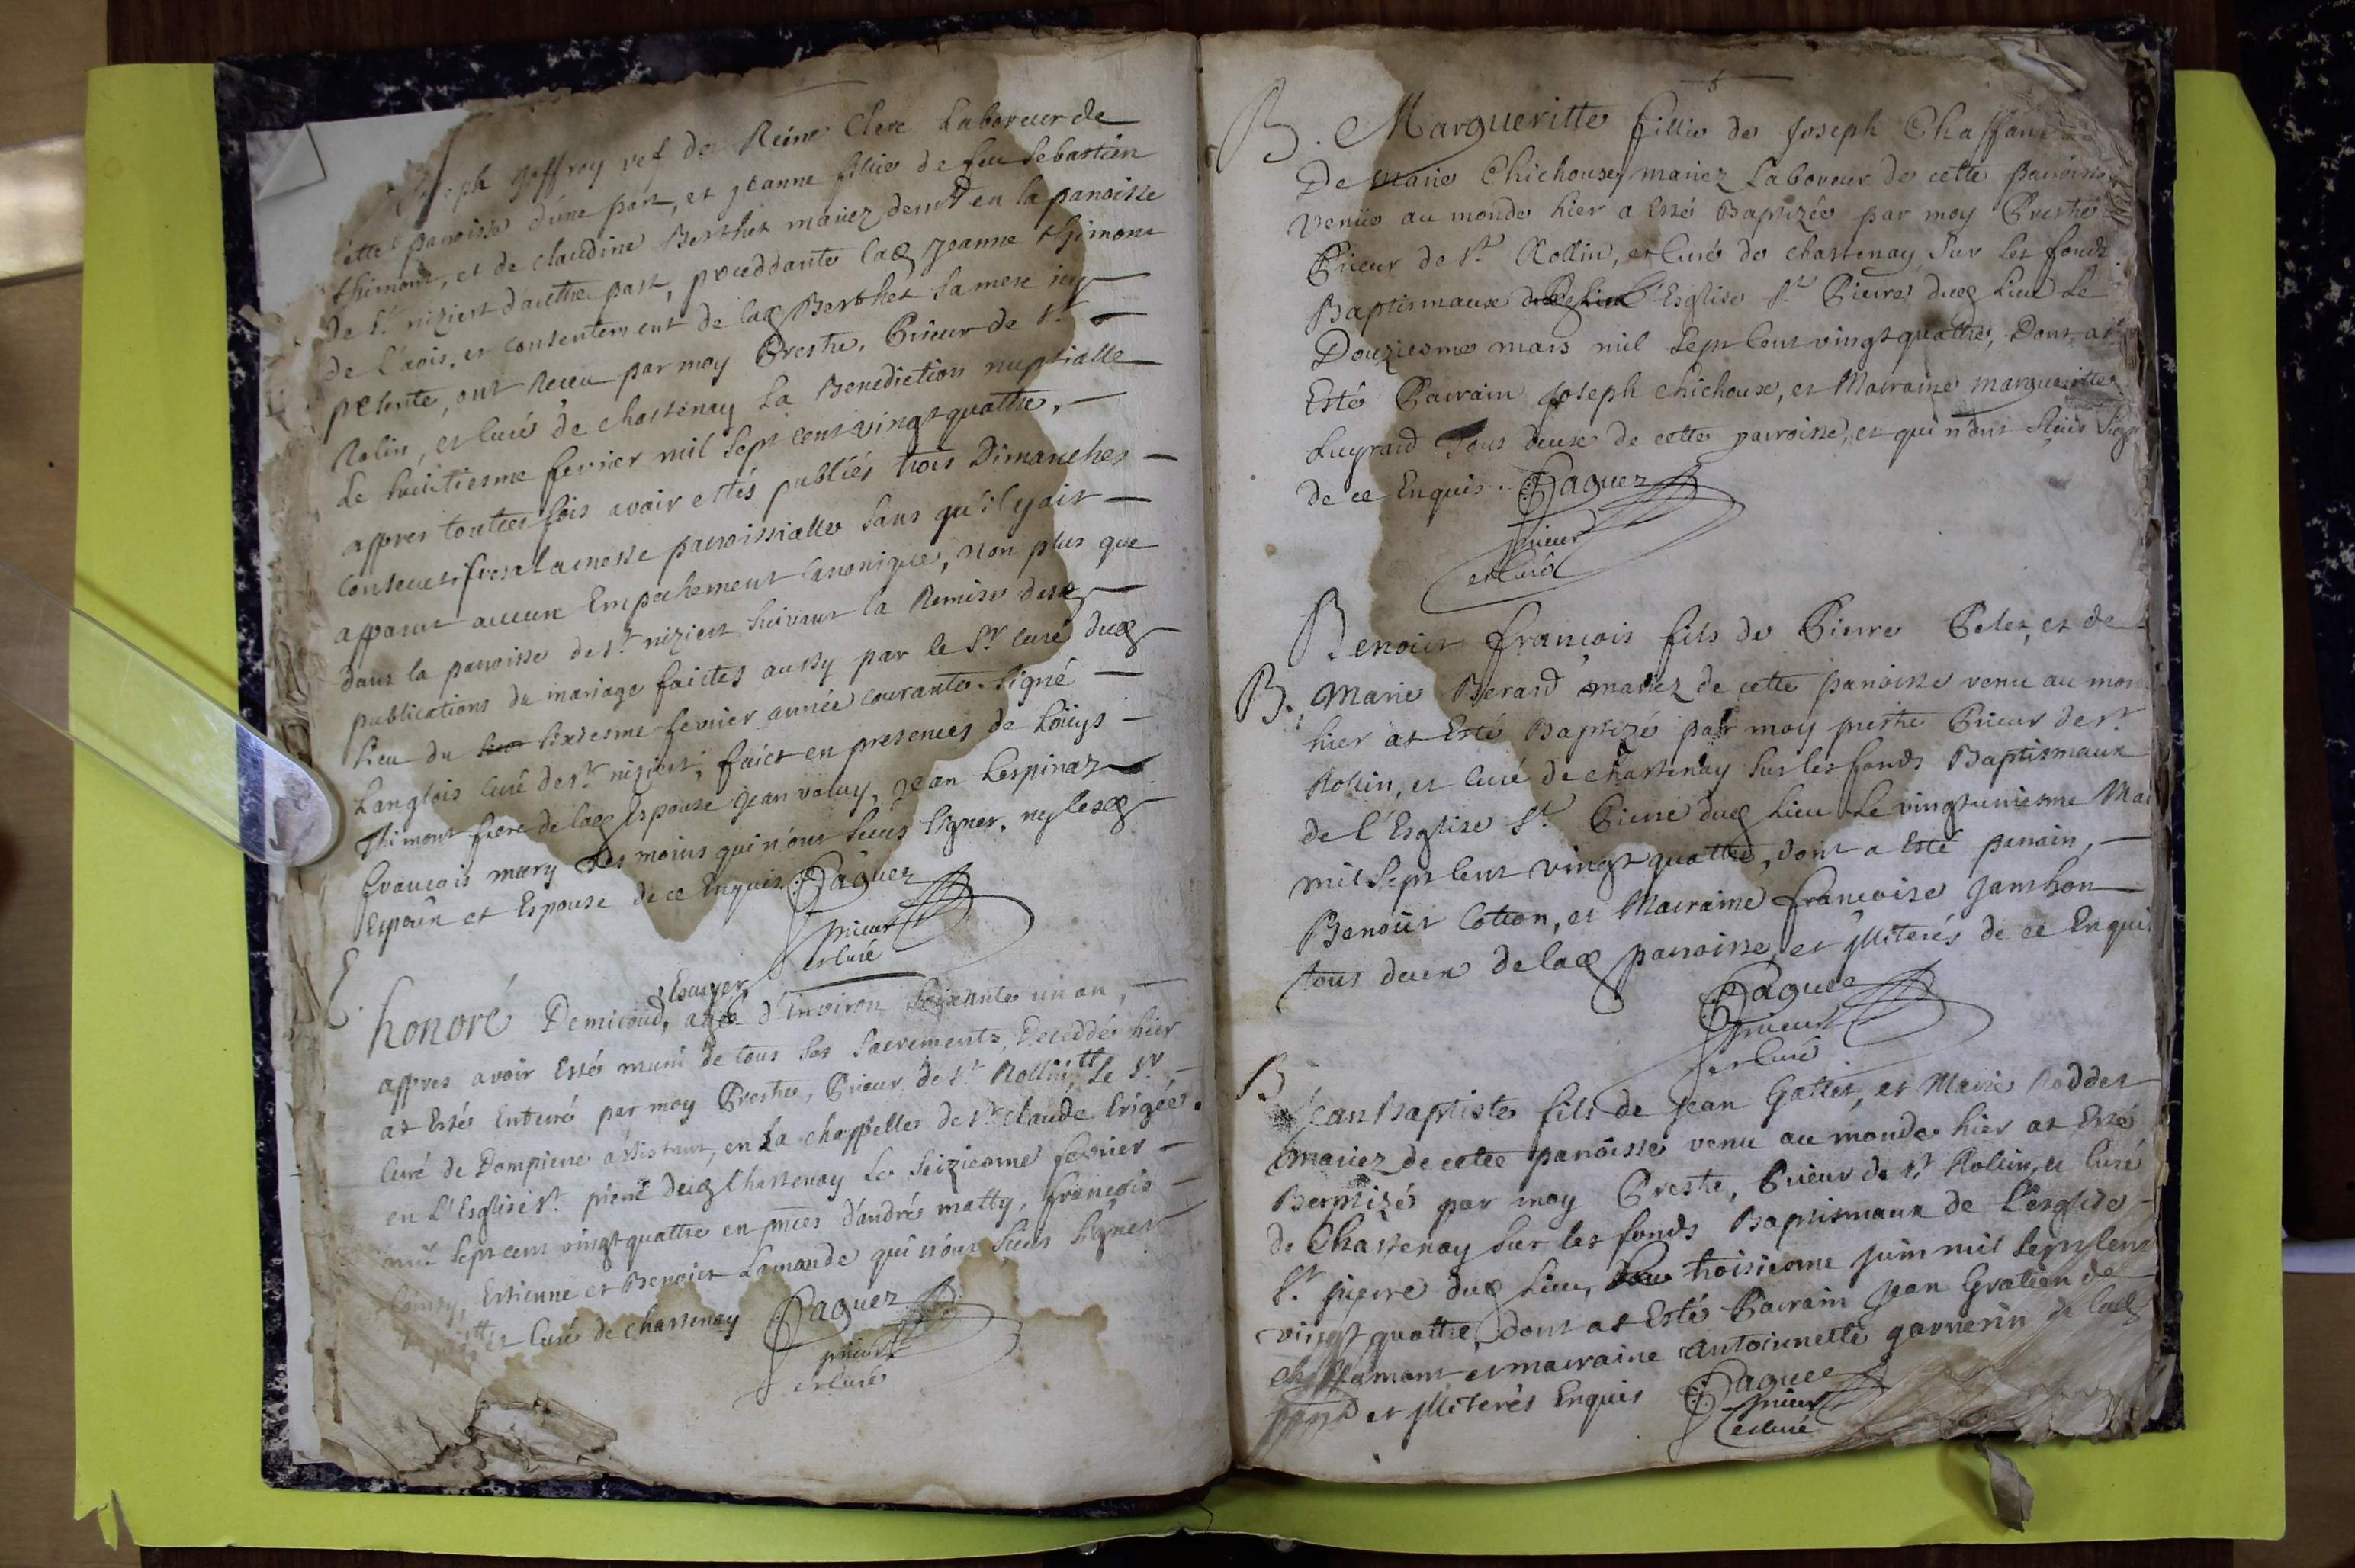 Joseph Joffroy vef de Reine Clerc Laboreur de
Cette parroisse d'une part, et Jeanne fillie de feu Sebastien
thimont, et de claudine Berthet mariez demt en la parroisse
de St. niziert d'aultre part, proceddante lad Jeanne thimont
de l'avis, et consentement de lad Berthet sa mere icy
presente, ont receu par moy Prestre, Prieur de St.
Rolin, et Curé de chastenay La Benediction nuptialle
Le huictiesme fevrier mil sept cent vingt quattre,
appres touttes fois avoir estés publiés trois Dimanches
consecutifs a la messe parroissialle sans qu'il y ait
apparut aucun Empechement Canonique, non plus que
dans la parroisse de St. niziert suivant la Remise desd
publications de mariage faictes aussy par le Sr. Curé dud
Lieu du sixiesme fevrier année courante. Signé
Langlois Curé de St. niziert, faict en presences de Loüys
Thimont frere de lad Espouse Jean valuy, Jean Lespinaz
François mury tesmoins qui n'ont sceus signer, ny lesd
Espoux et Espouse de ce Enquis. Paguez
prieur
et Curé
E.
Escuyer
honoré Demicoud, agé d'Environ soixante un an,
appres avoir Esté muni de tous ses sacrements, Deceddé hier
at Esté Enterré par moy Prestre, Prieur de St. Rollin tt Le Sr.
Curé de Dompierre assistant, en La chappelle de St. claude Erigée
en L'Eglise St. pierre dud Chastenay Le seiziesme fevrier
mil sept cent vingt quattre en pnces d'andré matty, françois
Estienne et Benoict Lamande qui n'ont sceus signer
tt et Curé de chastenay Paguez
prieur
et Curé
B. Margueritte fillie de Joseph Chaffan
De Marie Chichoux, mariez Laboreur de cette parroisse
venüe au monde hier a Esté Baptizée par moy Prestre
Prieur de St. Rollin, et Curé de chastenay sur les fonds
Baptismaux de L'Esglise St. Pierre dud Lieu Le
Douziesme mars mil sept cent vingt quattre, Dont at
Esté Parrain Joseph chichoux, et Marraine margueritte
Luyrard Tous deux de cette parroisse, et qui n'ont sceus sig
de ce Enquis. Paguez
prieur
et Curé
Benoict françois fils de Pierre Pelet, et de
B. Marie Berard mariez de cette parroisse venu au mon
hier at Esté Baptizé par moy prestre Prieur de St
Rollin, et Curé de chastenay sur les fonds Baptismaux
de l'Esglise St. Pierre dud Lieu Le vingt uniesme Mai
mil sept cent vingt quattre, dont a Esté parrain,
Benoit Cotton, et Marraine françoise Jamhon
tous deux de lad parroisse, et illiterés de ce Enquis
Paguez
prieur
et Curé
B
Jean Baptiste fils de Jean Gallet, et Marie Roddet
mariez de cette parroisse venu au monde hier at Esté
Baptizé par moy Prestre, Prieur de St. Rollin, et Curé
de Chastenay sur les fonds Baptismaux de L'esglise
St. pierre dud Lieu, troisiesme Juin mil sept cent
vingt quattre, dont at Esté Parrain Jean Gratien de
et marraine Antoinnette garnerin de lad
et illiterés Enquis Paguez
prieur
et Curé